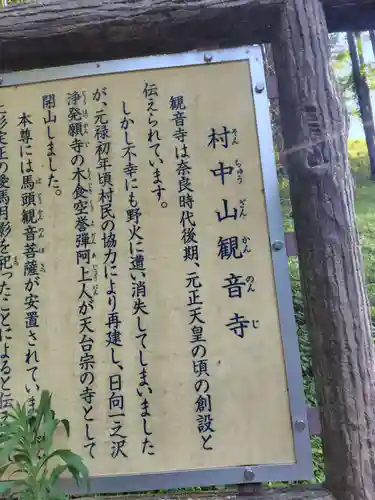 村中山観音寺
そん ちゅう ざん かん のん じ
観音寺は奈良時代後期、元正天皇の頃の創設と
伝えられています。
しかし不幸にも野火に遭い消失してしまいました
が、元禄初年頃村民の協力により再建し、日向一之沢
浄発願寺の木食空誉弾阿上人が天台宗の寺として
開山しました。
本尊には馬頭観音菩薩が安置されています